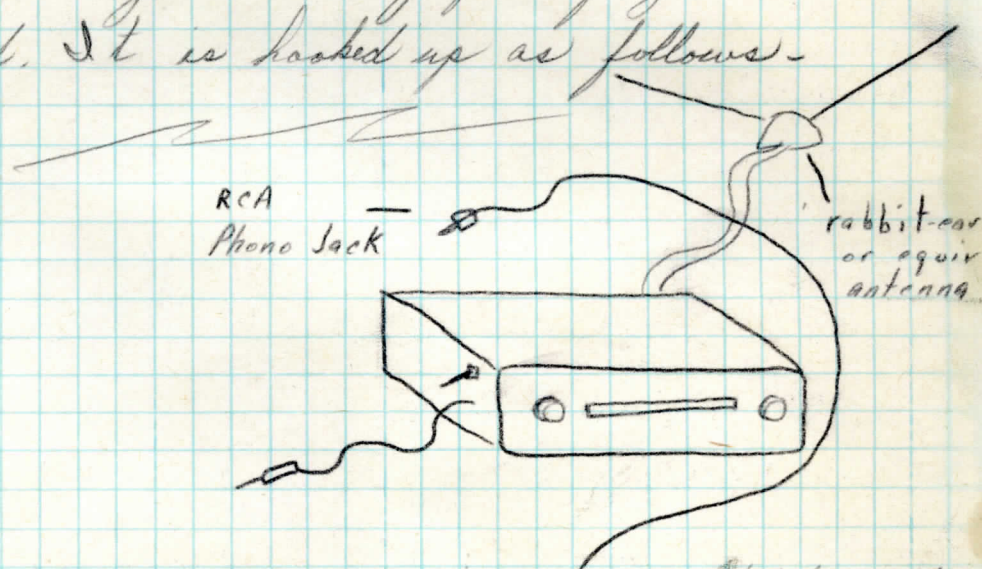 It is hooked up as follows-
RCA
Phono Jack
rabbit-ear
or equiv
antenna